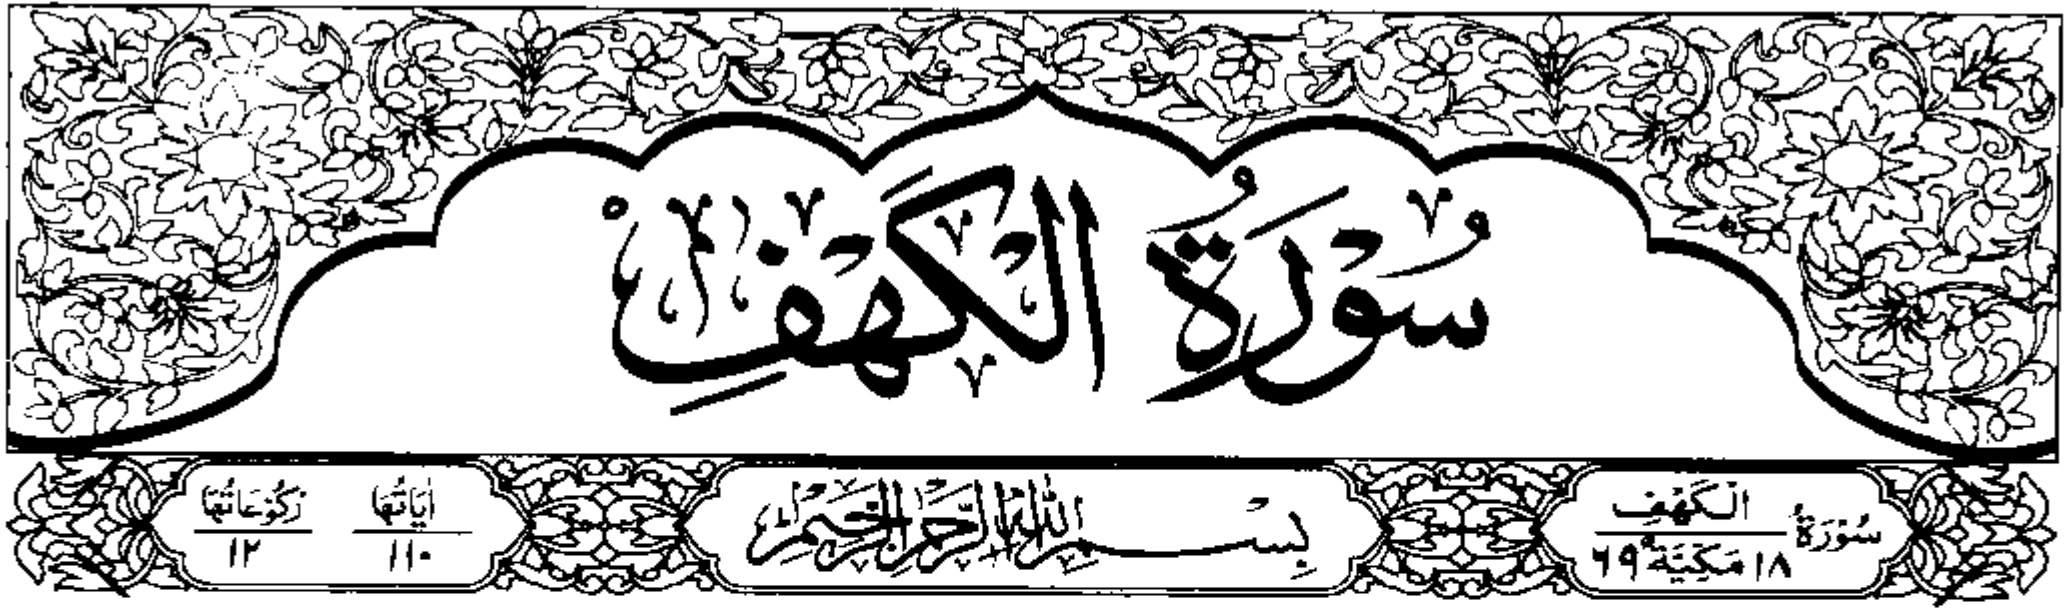 سُوْرَةُ الْكَهْفِ
سُوْرَةُ الْكَهْفِ
١٨ مَكِّيَّةٌ ٦٩
بِسْمِ اللهِ الرَّحْمٰنِ الرَّحِيْمِ
اٰيَاتُهَا
١١٠
رُكُوْعَاتُهَا
١٢